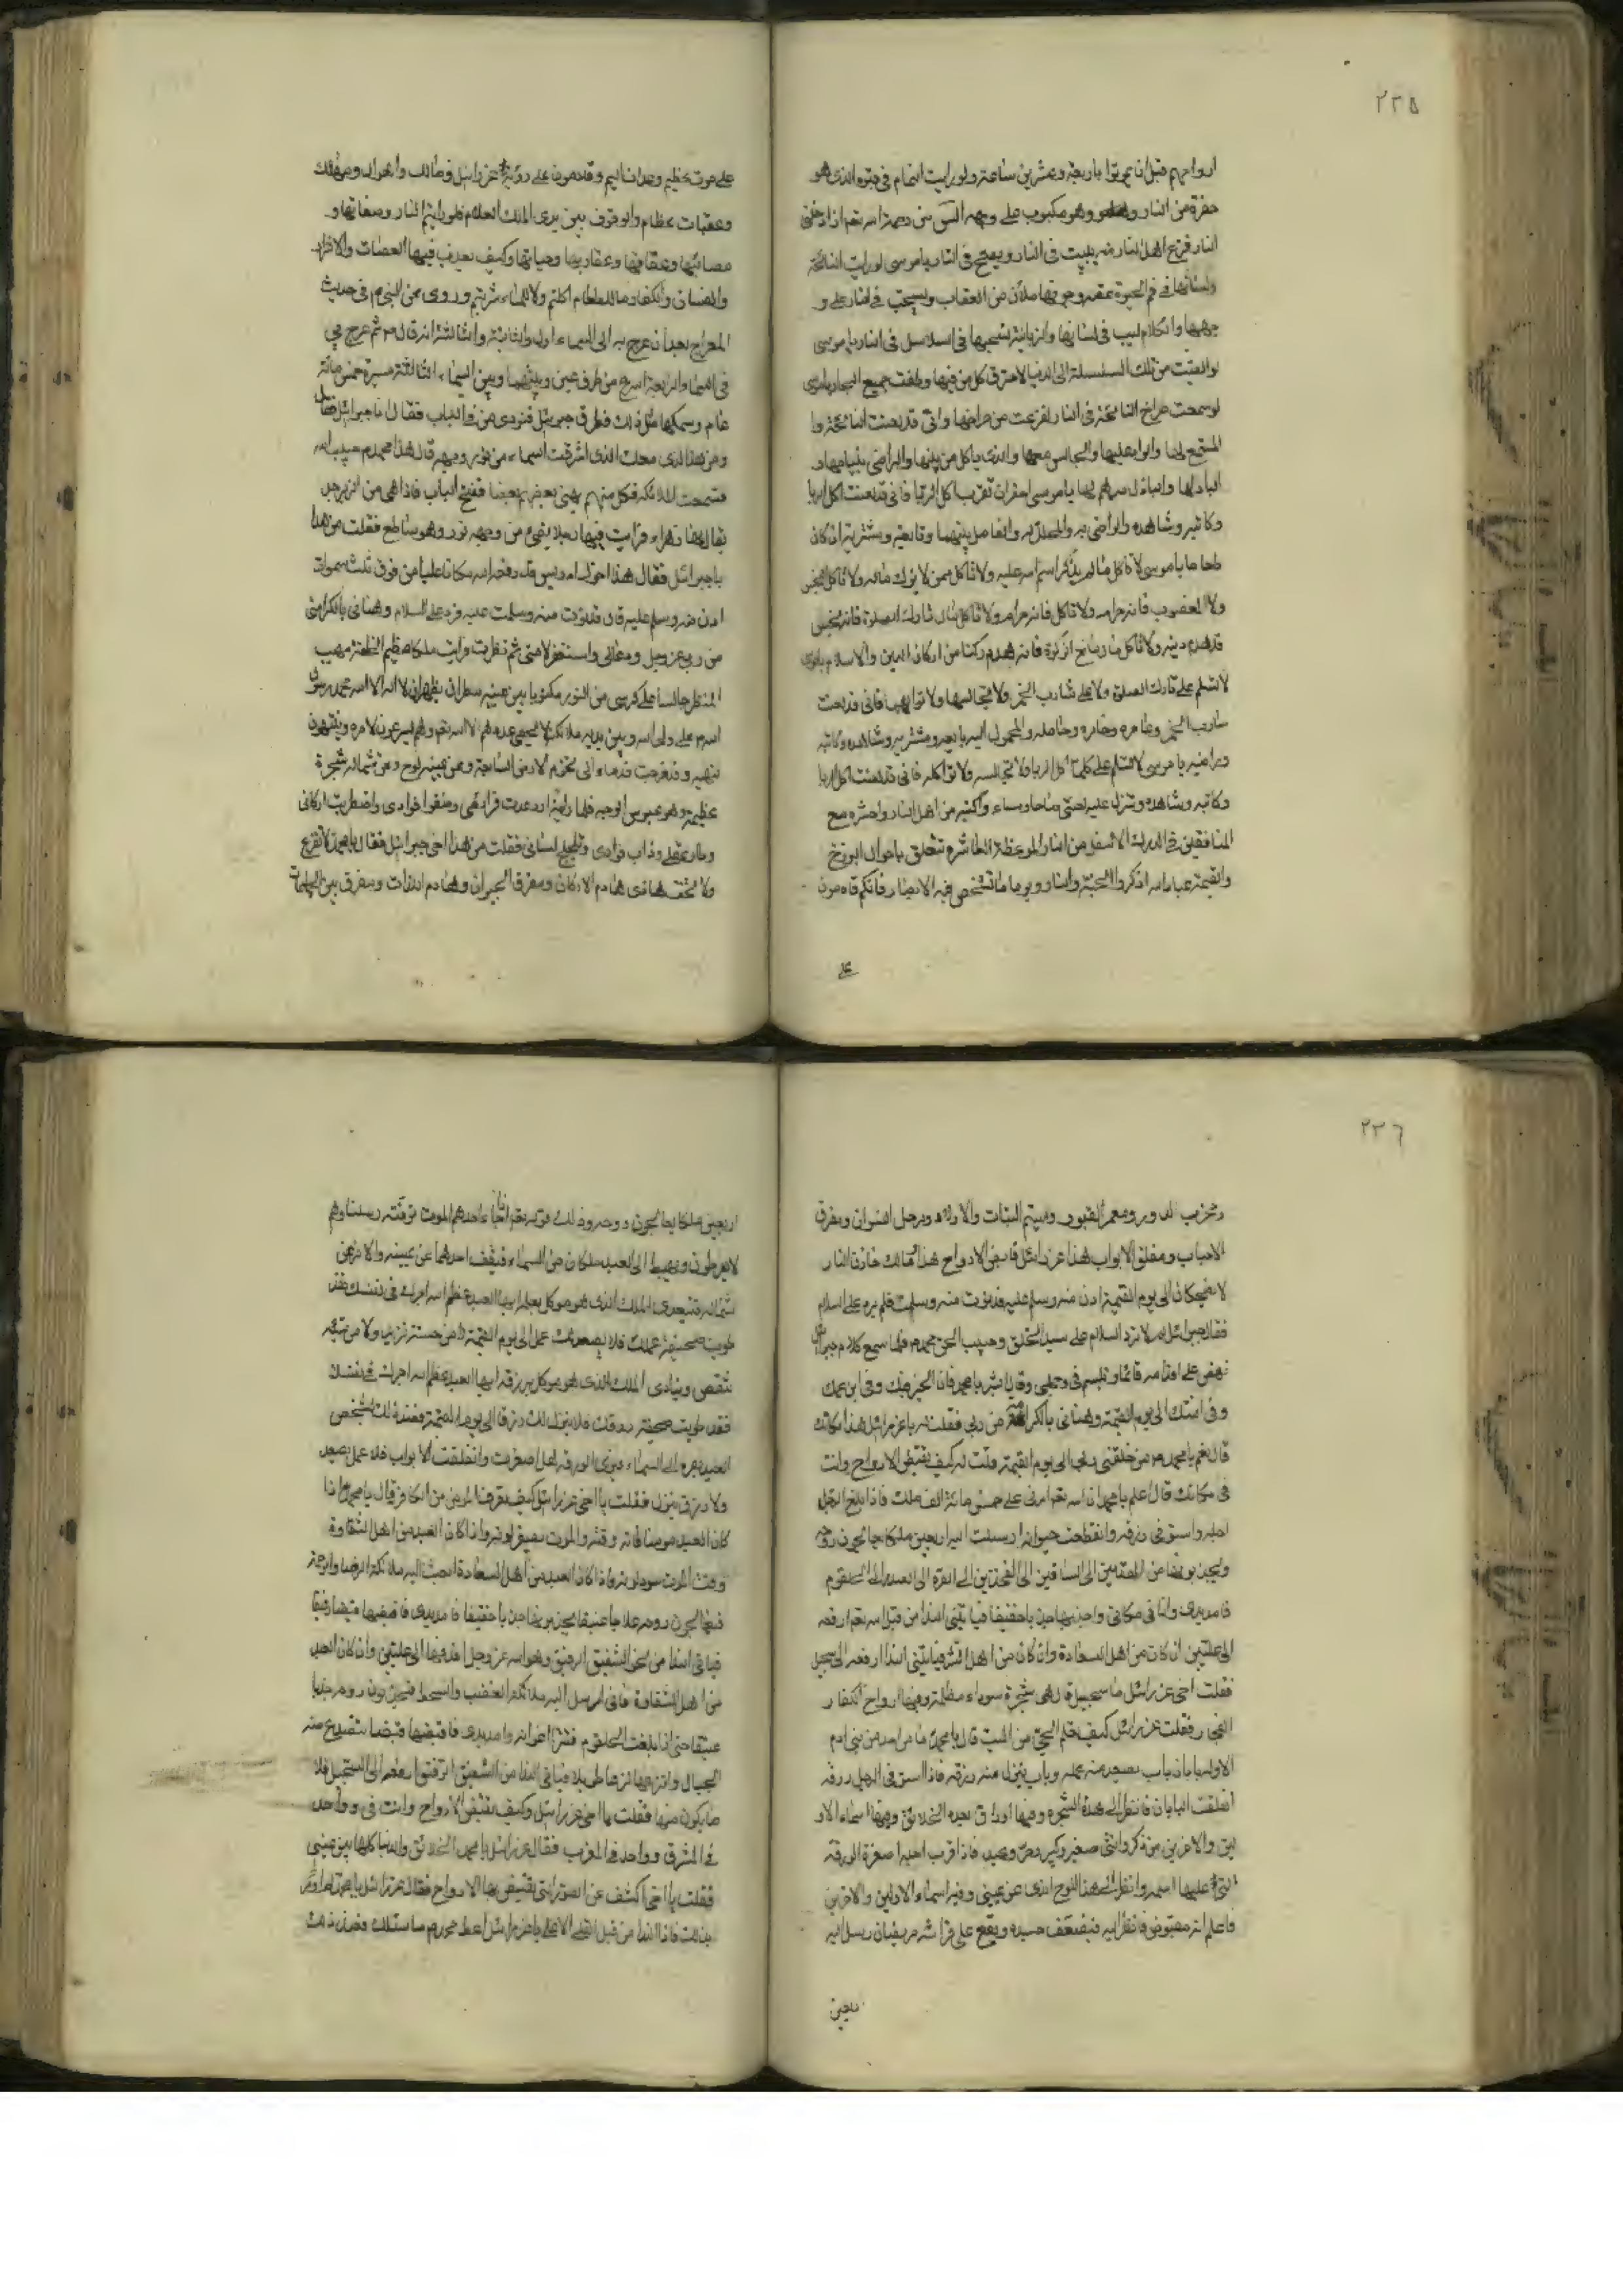 ٢٣٥
ارواحهم قبل ان يموتوا باربعة وعشرين ساعة ولو رايت النمام في قبره الذي هو
حفرة من النار وهو مكبوب على وجهه
النار فزع اهل النار منه يبيت في النار ويصيح في النار يا موسى لو رايت النائحة
ولسانها في فم الحية وجوفها ملآن من العقاب وتسحب في النار على و
جهها والكلاليب في لسانها والزبانية تسحبها في السلاسل في النار يا موسى
لو القيت من تلك السلسلة الى الدنيا لاحترق كل من فيها وطفت جميع البحار يا موسى
لو سمعت صراخ النائحة في النار لفزعت من صراخها واني قد لعنت النائحة وا
لمستمع لها والجالس معها والذي ياكل من
يا موسى احذر ان تقرب اكل الربا فاني قد لعنت اكل الربا
وكاتبه وشاهده والراضي به والعامل بينهما وبايعه ومشتريه ان كان
طعاما يا موسى لا تاكل مما لم يذكر اسم الله عليه ولا تاكل ممن لا يزك ماله
ولا المغصوب فانه حرام ولا تاكل مال تارك الصلوة فانه نجس
قد هدم دينه ولا تاكل مال مانع الزكوة فانه هدم ركنا من اركان الدين والاسلام يا موسى
لا تسلم على تارك الصلوة ولا على شارب الخمر ولا تجالسهما ولا تواكلهما فاني قد لعنت
شارب الخمر وعاصره وحامله والمحمول اليه وبايعه ومشتريه وشاهده وكاتبه
يا موسى لا تسلم على اكل الربا ولا تجالسه ولا تواكله فاني قد لعنت اكل الربا
وكاتبه وشاهده وتنزل عليه لعنتي صباحا ومساء واكتبه من اهل النار واحشره مع
المنافقين في الدرك الاسفل من النار الموعظة العاشرة تتعلق باحوال البرزخ
والقيمة عباد الله اذكروا الجنة والنار ويوما تشخص فيه الابصار فانكم قادمون
على
على موت عظيم وعذاب اليم وقادمون على رؤية عزرائيل
وعقبات عظام والوقوف بين يدي الملك العلام فلو رايتم النار
مصائبها وعقابها وعقاربها وحياتها وكيف يعذب فيها العصات
والكفار ما للطعام اكلتم ولا للماء شربتم وروي عن النبي م في حديث
المعراج بعد ان عرج به الى السماء الاولى والثانية والثالثة انه قال م ثم عرج بي
في السماء الرابعة اسرع من طرف عين وبينهما وبين السماء الثالثة مسيرة خمس مائة
عام وسمكها مثل ذلك فطرق جبرئيل فنودي من في الباب فقال انا جبرائيل فقال
ومن هذا الذي معك الذي اشرقت السماء من نور وجهه قال هذا محمد م حبيب الله
فسمعت الملائكة فكل منهم يهني بعضهم بعضا ففتح الباب فاذا هي من الزبرجد
يقال لها فرايت فيها رجلا يضيء من وجهه نور وهو ساطع فقلت من هذا
يا جبرائيل فقال هذا اخوك ادريس قد رفعه الله مكانا عليا من فوق ثلث سموات
ادن منه وسلم عليه قال فدنوت منه وسلمت عليه فرد علي السلام وهناني بالكرامة
من ربي عز وجل ودعا لي واستغفر لامتي ثم نظرت فرايت ملكا عظيم الخلقة مهيب
المنظر جالسا على كرسي من النور مكتوبا بين عينيه سطران يظهران لا اله الا الله محمد رسول
الله م علي ولي الله وبين يديه ملائكة لا يحصي عددهم الا الله
قدماه الى تخوم الارض السابعة وعن يمينه لوح وعن شماله شجرة
عظيمة وهو عبوس الوجه فلما رايته ارتعدت فرائصي وخفق فؤادي واضطربت اركاني
وطار عقلي وذاب فؤادي وتلجلج لساني فقلت من هذا اخي جبرائيل فقال يا محمد لا تفزع
ولا تخف هذا هادم الاركان ومفرق الجيران وهادم اللذات ومفرق بين الجماعات
٢٣٦
ومخرب الدور ومعمر القبور وميتم البنات والاولاد ومرمل النسوان ومفرق
الاحباب ومغلق الابواب هذا عزرائيل قابض الارواح هذا مالك خازن النار
لا يضحكان الى يوم القيمة ادن منه وسلم عليه فدنوت منه وسلمت فلم يرد علي السلام
فقال جبرائيل لم لا ترد السلام على سيد الخلق وحبيب الحق محمد م فلما سمع كلام جبرائيل
نهض على اقدامه قائما وتبسم في وجهي وقال ابشر يا محمد فان الخير فيك وفي ابن عمك
وفي امتك الى يوم القيمة وهناني بالكرامة من ربي فقلت يا عزرائيل هذا مكانك
قال نعم يا محمد م منذ خلقني ربي الى يوم القيمة قلت له كيف تقبض الارواح وانت
في مكانك قال اعلم يا محمد ان الله تعم امرني على خمس مائة الف ملك فاذا بلغ الرجل
اجله واستوفى رزقه وانقطعت حيوته ارسلت اليه اربعين ملكا يعالجون روحه
ويجذبونها من القدمين الى الساقين الى الفخذين الى السرة الى الصدر الى الحلقوم
فامد يدي وانا في مكاني واجذبها جذبا خفيفا فياتيني النداء من قبل الله تعم ارفعه
الى عليين ان كان من اهل السعادة وان كان من اهل الشر فياتيني النداء ارفعه الى سجيل
فقلت اخي عزرائيل ما سجيل قال هي شجرة سوداء مظلمة وفيها ارواح الكفار
الفجار فقلت عزرائيل كيف تعلم الحي من الميت قال يا محمد ما من احد من بني ادم
الا وله بابان باب يصعد منه عمله وباب ينزل منه رزقه فاذا استوفى الرجل رزقه
اغلقت البابان فانظر الى هذه الشجرة وفيها اوراق بعدد الخلايق وفيها اسماء الاو
لين والاخرين من ذكر وانثى صغير وكبير وحر وعبد فاذا قرب اجله اصفرت الورقة
التي عليها اسمه وانظر الى هذا اللوح الذي عن يميني وفيه اسماء الاولين والاخرين
فاعلم انه مقبوض فانظر اليه فيضعف جسده ويقع على فراشه مريضا فارسل اليه
اربعين
اربعين ملكا يعالجون روحه وذلك قوله تعم اذا جاء احدهم الموت توفته رسلنا وهم
لا يفرطون ويهبط الى العبد ملكان من السماء فيقف احدهما عن يمينه والاخر عن
شماله فينادي الملك الذي هو موكل بعمله ايها العبد عظم الله اجرك في نفسك فقد
طويت صحيفة عملك فلا يصعد لك عمل الى يوم القيمة لا من حسنة تزيد ولا من سيئة
تنقص وينادي الملك الذي هو موكل برزقه ايها العبد عظم الله اجرك في نفسك
فقد طويت صحيفة رزقك فلا ينزل لك رزقا الى يوم القيمة فعند ذلك يشخص
العبد بصره الى السماء فيرى الورقة قد اصفرت وانغلقت الابواب فلا عمل يصعد
ولا رزق ينزل فقلت يا اخي عزرائيل كيف تعرف المؤمن من الكافر قال يا محمد اذا
كان العبد مؤمنا فانه وقت الموت يصفر لونه واذا كان العبد من اهل الشقاوة
وقت الموت يسود لونه واذا كان العبد من اهل السعادة ابعث اليه ملائكة الرضا والرحمة
فيعالجون روحه علاجا يجذبونها جذبا خفيفا فامد يدي فاقبضها قبضا رفيقا
فياتي النداء من نحو الشفيق الرفيق وهو الله عز وجل ارفعها الى عليين وان كان العبد
من اهل الشقاوة فاني ارسل اليه ملائكة الغضب والسخط فيجذبون روحه جذبا
عنيفا حتى اذا بلغت الحلقوم وامد يدي فاقبضها قبضا تتصدع منه
الجبال وانزعها نزعا طويلا فياتي النداء من الشفيق ارفعها الى السجيل فلا
ما يكون منها فقلت يا اخي عزرائيل وكيف تقبض الارواح وانت في وواحد
في المشرق وواحد في المغرب فقال عزرائيل يا محمد الخلائق والدنيا كلها بين عيني
فقلت يا اخي اكشف عن الصورة التي تقبض بها الارواح فقال عزرائيل يا محمد
بذلك فاذا النداء من قبل العلي الاعلى يا عزرائيل اعط محمد م ما سئلك فعند ذلك